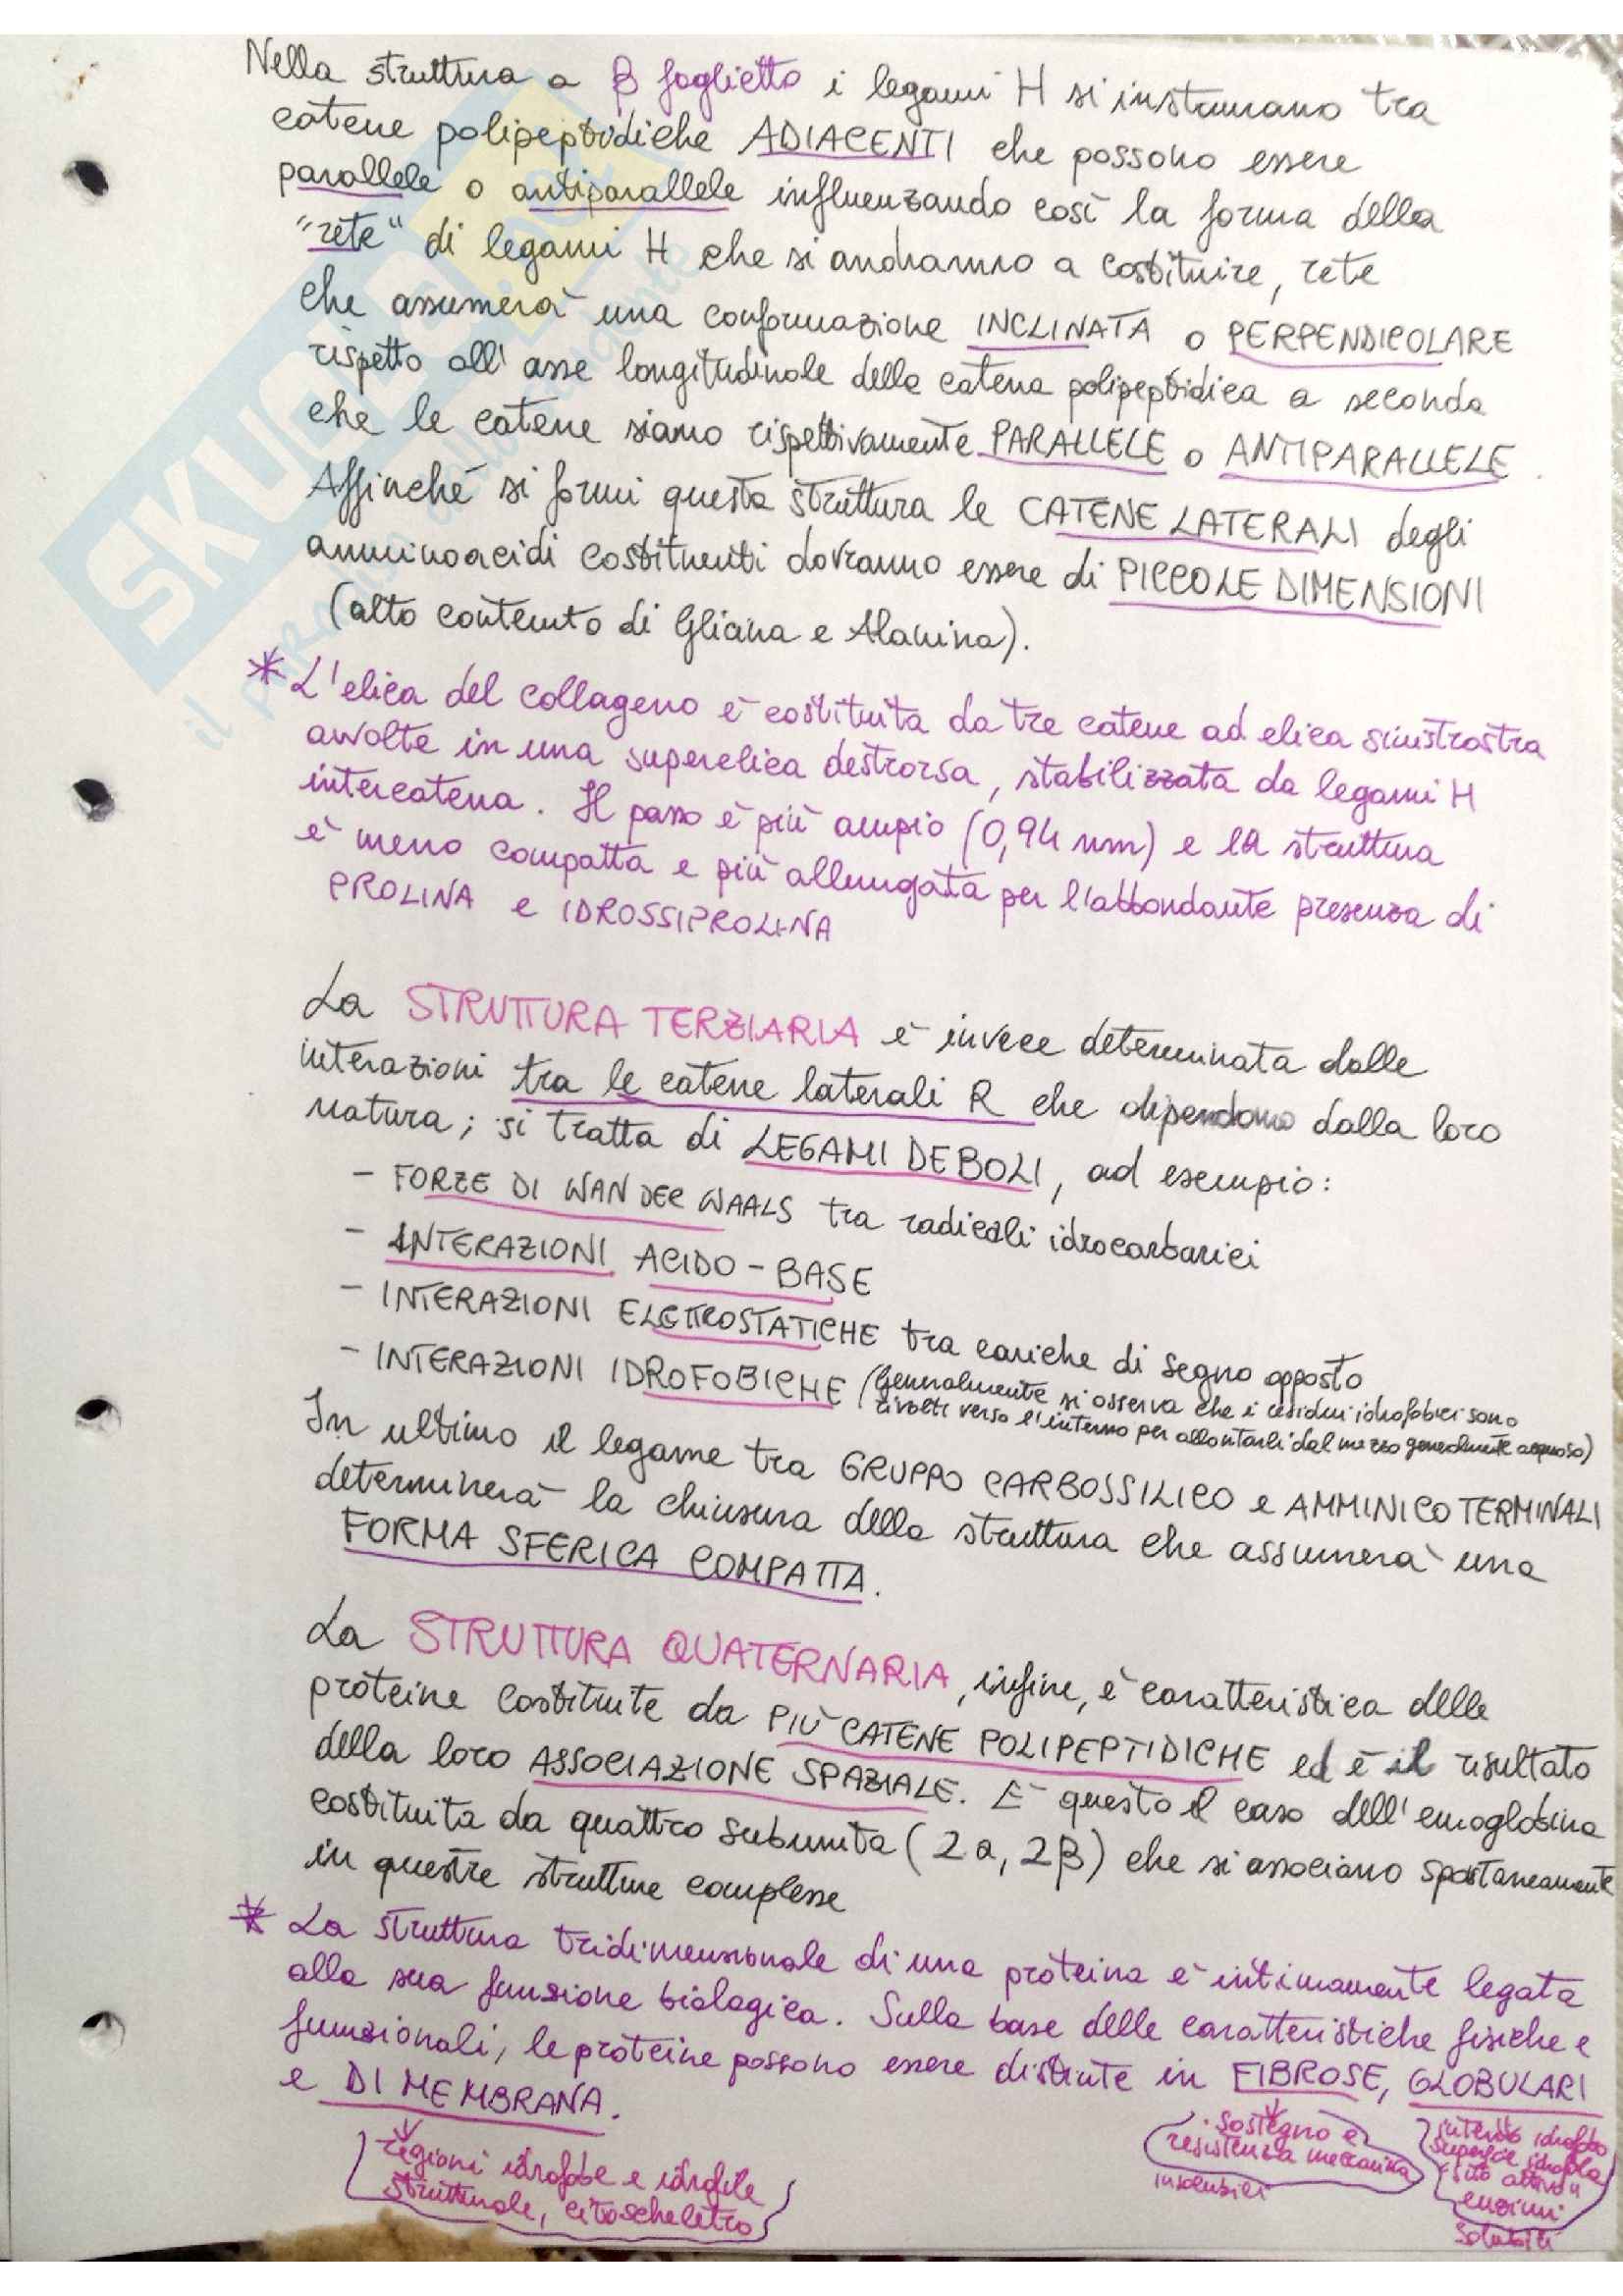 Nella struttura a β foglietto i legami H si instaurano tra
catene polipeptidiche ADIACENTI che possono essere
parallele o antiparallele influenzando così la forma della
"rete" di legami H che si andranno a costituire, rete
che assumerà una conformazione INCLINATA o PERPENDICOLARE
rispetto all'asse longitudinale della catena polipeptidica a seconda
che le catene siano rispettivamente PARALLELE o ANTIPARALLELE.
Affinché si formi questa struttura le CATENE LATERALI degli
amminoacidi costituenti dovranno essere di PICCOLE DIMENSIONI
(alto contenuto di Glicina e Alanina).
* L'elica del collageno è costituita da tre catene ad elica sinistrostra
avvolte in una superelica destrorsa, stabilizzata da legami H
intercatena. Il passo è più ampio (0,94 nm) e la struttura
è meno compatta e più allungata per l'abbondante presenza di
PROLINA e IDROSSIPROLINA
La STRUTTURA TERZIARIA è invece determinata dalle
interazioni tra le catene laterali R che dipendono dalla loro
natura; si tratta di LEGAMI DEBOLI, ad esempio:
- FORZE DI WAN DER WAALS tra radicali idrocarbarici
- INTERAZIONI ACIDO-BASE
- INTERAZIONI ELETTROSTATICHE tra cariche di segno opposto
- INTERAZIONI IDROFOBICHE (Generalmente si osserva che i residui idrofobici sono
rivolti verso l'interno per allontarli dal mezzo generalmente acquoso)
In ultimo il legame tra GRUPPO CARBOSSILICO e AMMINICO TERMINALI
determinerà la chiusura della struttura che assumerà una
FORMA SFERICA COMPATTA.
La STRUTTURA QUATERNARIA, infine, è caratteristica delle
proteine costituite da PIÙ CATENE POLIPEPTIDICHE ed è il risultato
della loro ASSOCIAZIONE SPAZIALE. È questo il caso dell'emoglobina
costituita da quattro subunità (2α, 2β) che si associano spontaneamente
in questre strutture complesse
* La struttura tridimensionale di una proteina è intimamente legata
alla sua funzione biologica. Sulla base delle caratteristiche fisiche e
funzionali, le proteine possono essere distinte in FIBROSE, GLOBULARI
e DI MEMBRANA.
regioni idrofobe e idrofile
strutturale, citoscheletro
. sostegno e
resistenza meccanica
insolubili
interno idrofobo
superficie idrofila
sito attivo
enzimi
solubili
SKUOLA.net
il paradiso dello studente